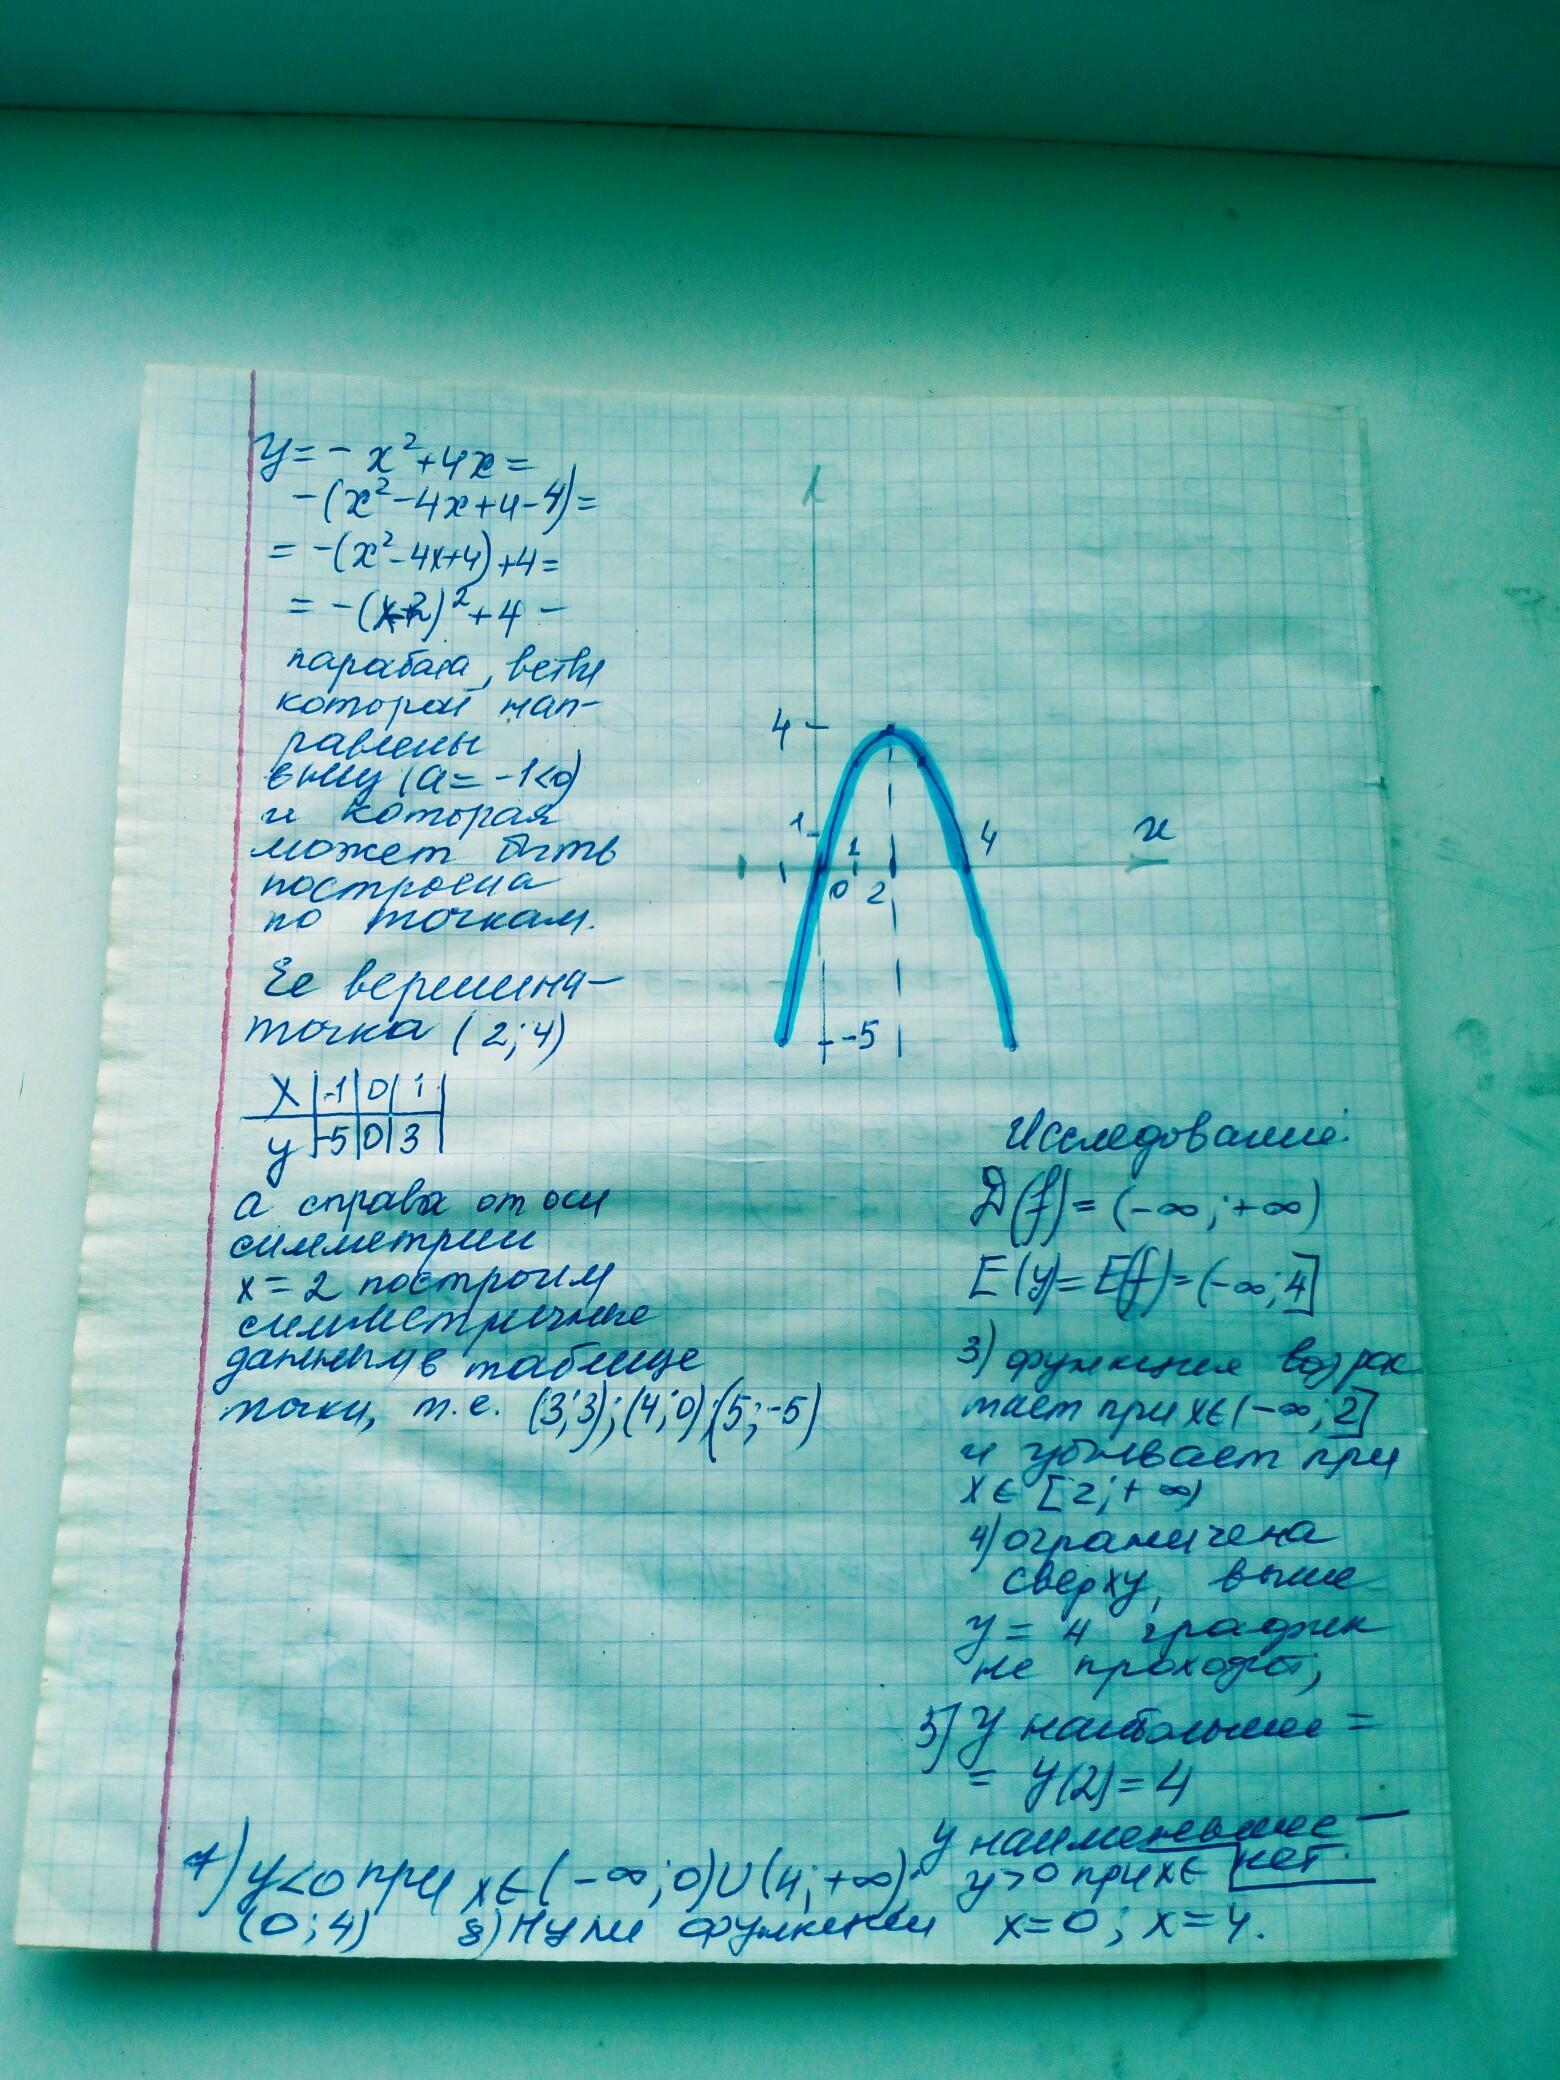 y = - x² + 4x =
-(x² - 4x + 4 - 4) =
= -(x² - 4x + 4) + 4 =
= -(x-2)² + 4 -
парабола, ветви
которой нап-
равлены
вниз (a = -1<0)
и которая
может быть
построена
по точкам.
Ее вершина-
точка (2; 4)
x | -1 | 0 | 1
y | -5 | 0 | 3
а справа от оси
симметрии
x = 2 построим
симметричные
данным в таблице
точки, т.е. (3;3); (4;0); (5;-5)
4
1
1
4
x
0
2
-5
Исследование:
D(f) = (-∞; +∞)
E(y) = E(f) = (-∞; 4]
3) функция возрас
тает при x∈(-∞; 2]
и убывает при
x∈ [2; +∞)
4) ограничена
сверху, выше
y = 4 график
не проходит;
5) y наибольшее =
= y(2) = 4
y наименьшее -
нет.
7) y<0 при x∈(-∞; 0)∪(4; +∞); y>0 при x∈
(0; 4) 8) Нули функции x=0; x=4.